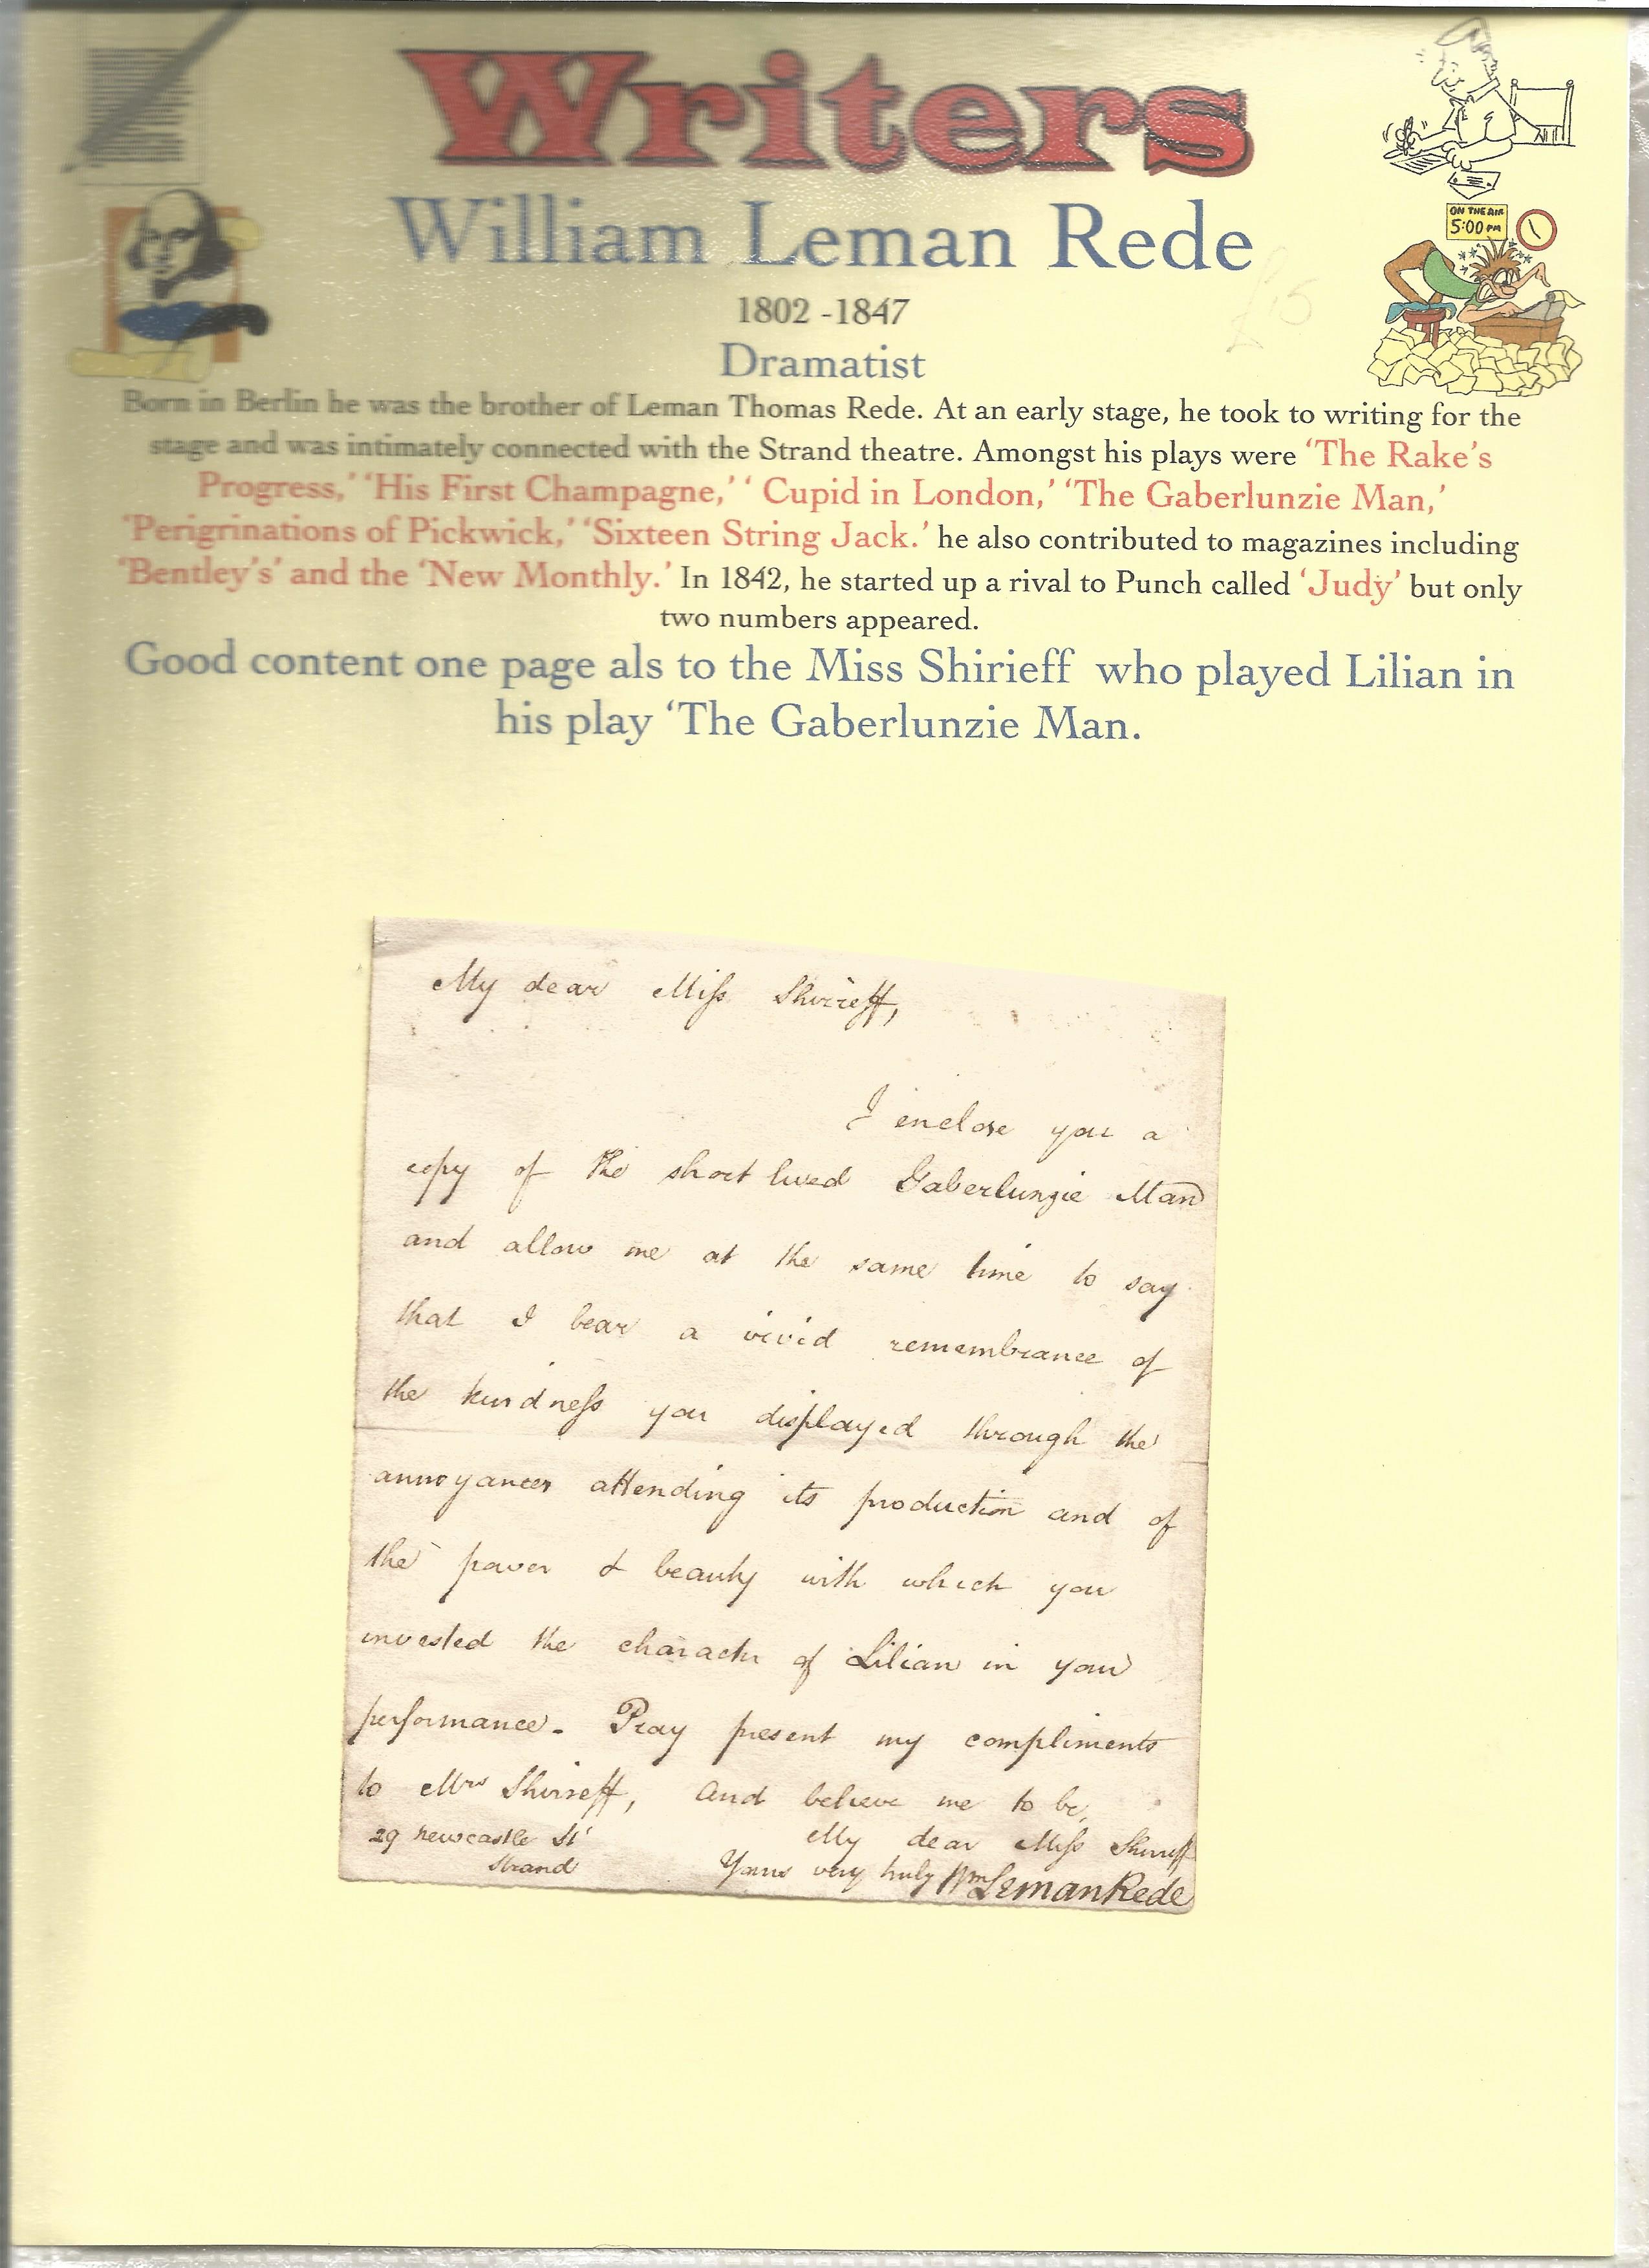 Writers
William Leman Rede
ON THE AIR
5:00 PM
£15
1802 -1847
Dramatist
Born in Berlin he was the brother of Leman Thomas Rede. At an early stage, he took to writing for the
stage and was intimately connected with the Strand theatre. Amongst his plays were ‘The Rake’s
Progress,’ ‘His First Champagne,’ ‘ Cupid in London,’ ‘The Gaberlunzie Man,’
‘Perigrinations of Pickwick,’ ‘Sixteen String Jack.’ he also contributed to magazines including
‘Bentley’s’ and the ‘New Monthly.’ In 1842, he started up a rival to Punch called ‘Judy’ but only
two numbers appeared.
Good content one page als to the Miss Shirieff who played Lilian in
his play ‘The Gaberlunzie Man.
My dear Miss Shirreff,
I enclose you a
copy of the short lived Gaberlunzie Man
and allow me at the same time to say
that I bear a vivid remembrance of
the kindness you displayed through the
annoyances attending its production and of
the power & beauty with which you
invested the character of Lilian in your
performance. Pray present my compliments
to Mrs Shirreff, and believe me to be,
29 Newcastle St My dear Miss Shirreff
Strand Yours very truly Wm Leman Rede